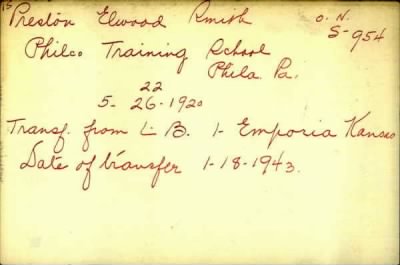 15
Preston Elwood Smith O. N.
S-954
Philco Training School
Phila. Pa.
22
5-26-1920
Transf. from L. B. 1- Emporia Kansas
Date of transfer 1-18-1943.